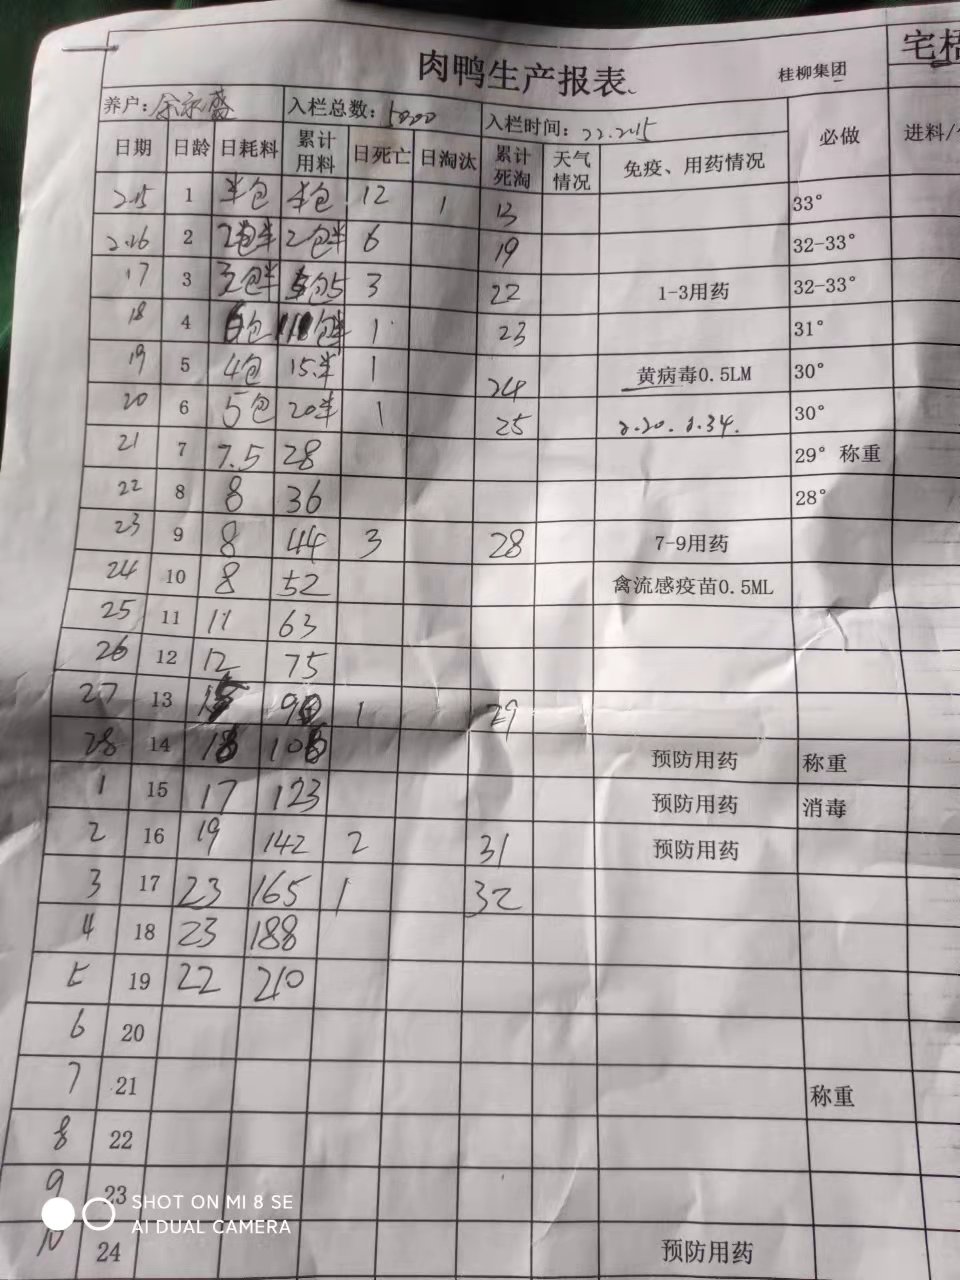 肉鸭生产报表 桂柳集团 宅
养户: 余永盛 入栏总数: 5000 入栏时间: 22.2.15 必做 进料/
日期 日龄 日耗料 累计用料 日死亡 日淘汰 累计死淘 天气情况 免疫、用药情况
2.15 1 半包 半包 12 1 13 33°
2.16 2 2包半 2包半 6 19 32-33°
17 3 3包半 包5 3 22 1-3用药 32-33°
18 4 6包 11包半 1 23 31°
19 5 4包 15半 1 24 黄病毒0.5LM 30°
20 6 5包 20半 1 25 2.20. 30°
21 7 7.5 28 29° 称重
22 8 8 36 28°
23 9 8 44 3 28 7-9用药
24 10 8 52 禽流感疫苗0.5ML
25 11 11 63
26 12 12 75
27 13 1 29
28 14 预防用药 称重
1 15 17 123 预防用药 消毒
2 16 19 142 2 31 预防用药
3 17 23 165 1 32
4 18 23 188
5 19 22 210
6 20
7 21 称重
8 22
9 23
10 24 预防用药
SHOT ON MI 8 SE
AI DUAL CAMERA